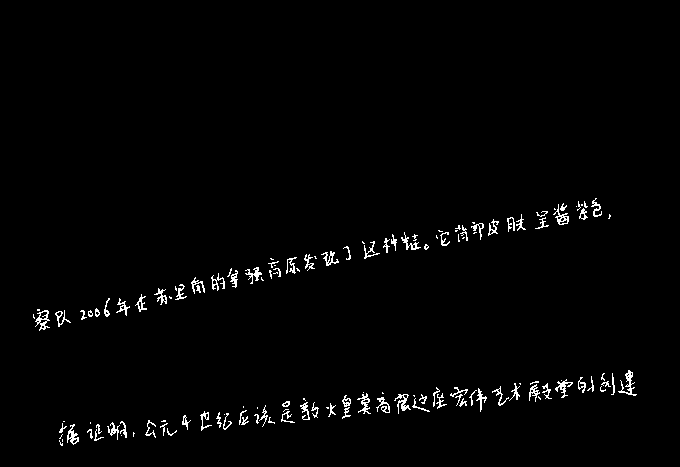 察队2006年在苏里南的拿骚高原发现了这种蛙。它背部皮肤呈酱紫色，
据证明，公元4世纪应该是敦煌莫高窟这座宏伟艺术殿堂的创建